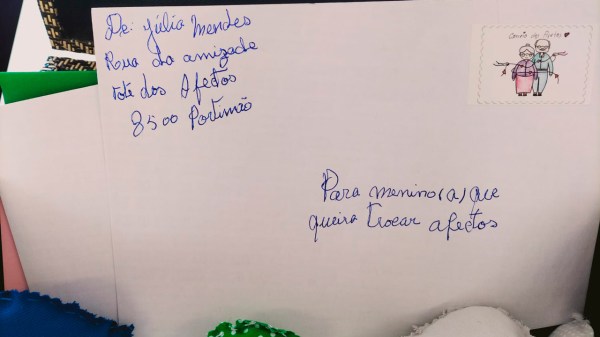 De: Júlia Mendes
Rua da amizade
lote dos Afectos
8500 Portimão
Para menino(a) que
queira trocar afectos